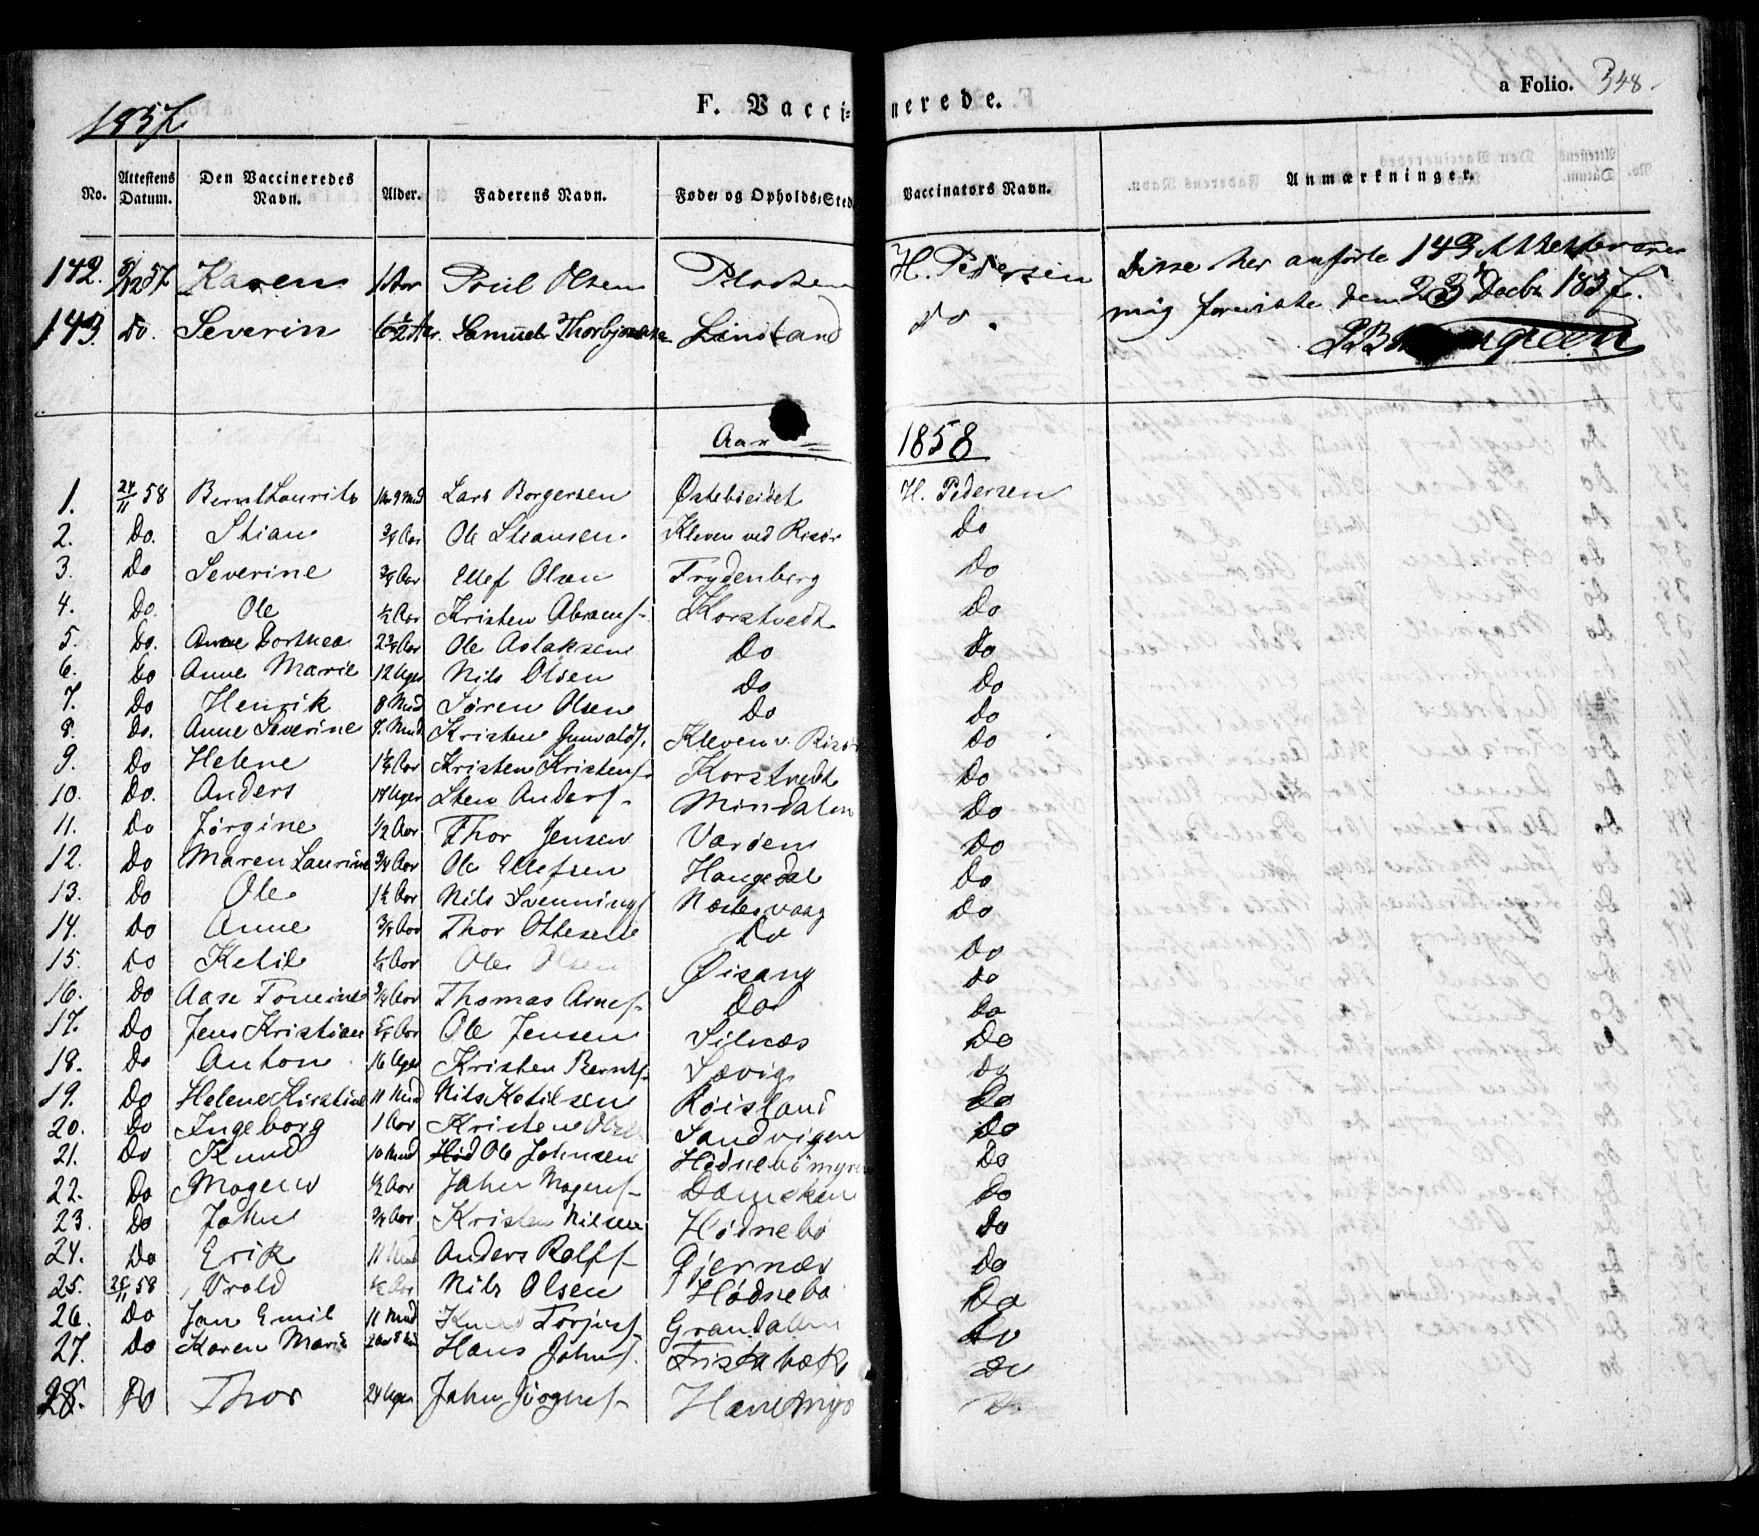 1857.
F. Vaccinerede.
a Folio. 348.
No. | Attestens Datum. | Den Vaccineredes Navn. | Alder. | Faderens Navn. | Føde- og Opholds-Sted | Vaccinators Navn. | Anmærkninger.
142. 5/12 57 Karen 1 Aar Poul Olsen H. Pedersen Disse her anførte 143 Attester ere
143. Do. Severin 6 1/2 Aar. Samuel Thorbjørnsen Lindland do. mig foreviste den 23 Decbr 1857.
Aar 1858
1. 24/11 58 Bernt Laurits 1 Aar 9 Md Lars Borgersen Østebøeidet H. Pedersen
2. Do. Stian 3/4 Aar Ole Stiansen Kleven ved Risør Do
3. Do Severine 3/4 Aar Ellef Olsen Frydenberg Do
4. Do. Ole 1/2 Aar Kristen Abrams. Korstvedt Do
5. Do. Anne Dorthea 2 3/4 Aar Ole Aslaksen Do Do
6. Do Anne Marie 12 Uger Nils Olsen Do Do
7. Do Henrik 8 Mnd Søren Olsen Do Do
8. Do. Anne Severine 7. Mnd Kristen Gunvalds. Kleven v. Risør Do
9. Do Helene 1 1/4 Aar Kristen Kristens. Korstvedt Do
10. Do. Anders 14 Uger Sten Anders. Mindalen Do
11. Do Jørgine 1/2 Aar Thor Jensen Varøen Do
12. Do Maren Laurine 3/4 Aar Ole Ellefsen Haugedal Do
13. Do Ole 1 1/2 Aar Nils Svennings Næslesvaag Do
14. Do Anne 3/4 Aar Thor Ottesen Do Do
15. Do Ketil 1/2 Aar Ole Olsen Øisang Do
16. Do Aase Tomine 3/4 Aar Thomas Arnes. Do Do
17. Do Jens Kristian 5/4 Aar Ole Jensen Silnæs Do
18. Do Anton 16 Uger Kristen Bernts. Sævig Do
19. Do Helene Kirstine 11 Mnd Nils Ketilsen Røisland Do
20. Do Ingeborg 1 Aar Kristen Olsen Sandvigen Do
21. Do Knud 10 Mnd Ole Johnsen Hødnebømyren Do
22. Do Mogens 1/2 Aar John Mogens. Do
23. Do John 3/4 Aar Kristen Nilsen Hødnebø Do
24. Do Erik 11 Mnd Anders Rolfs. Gjernæs Do
25. 25/11 58 Vrold 1/2 Aar Nils Olsen Hødnebø Do
26. Do Jan Emil 11 Mnd Knud Torjus. Grandalen Do
27. Do Karen Marie Hans Johns. Fristabæk Do
28. Do Thor 24 Uger John Jørgens. Do